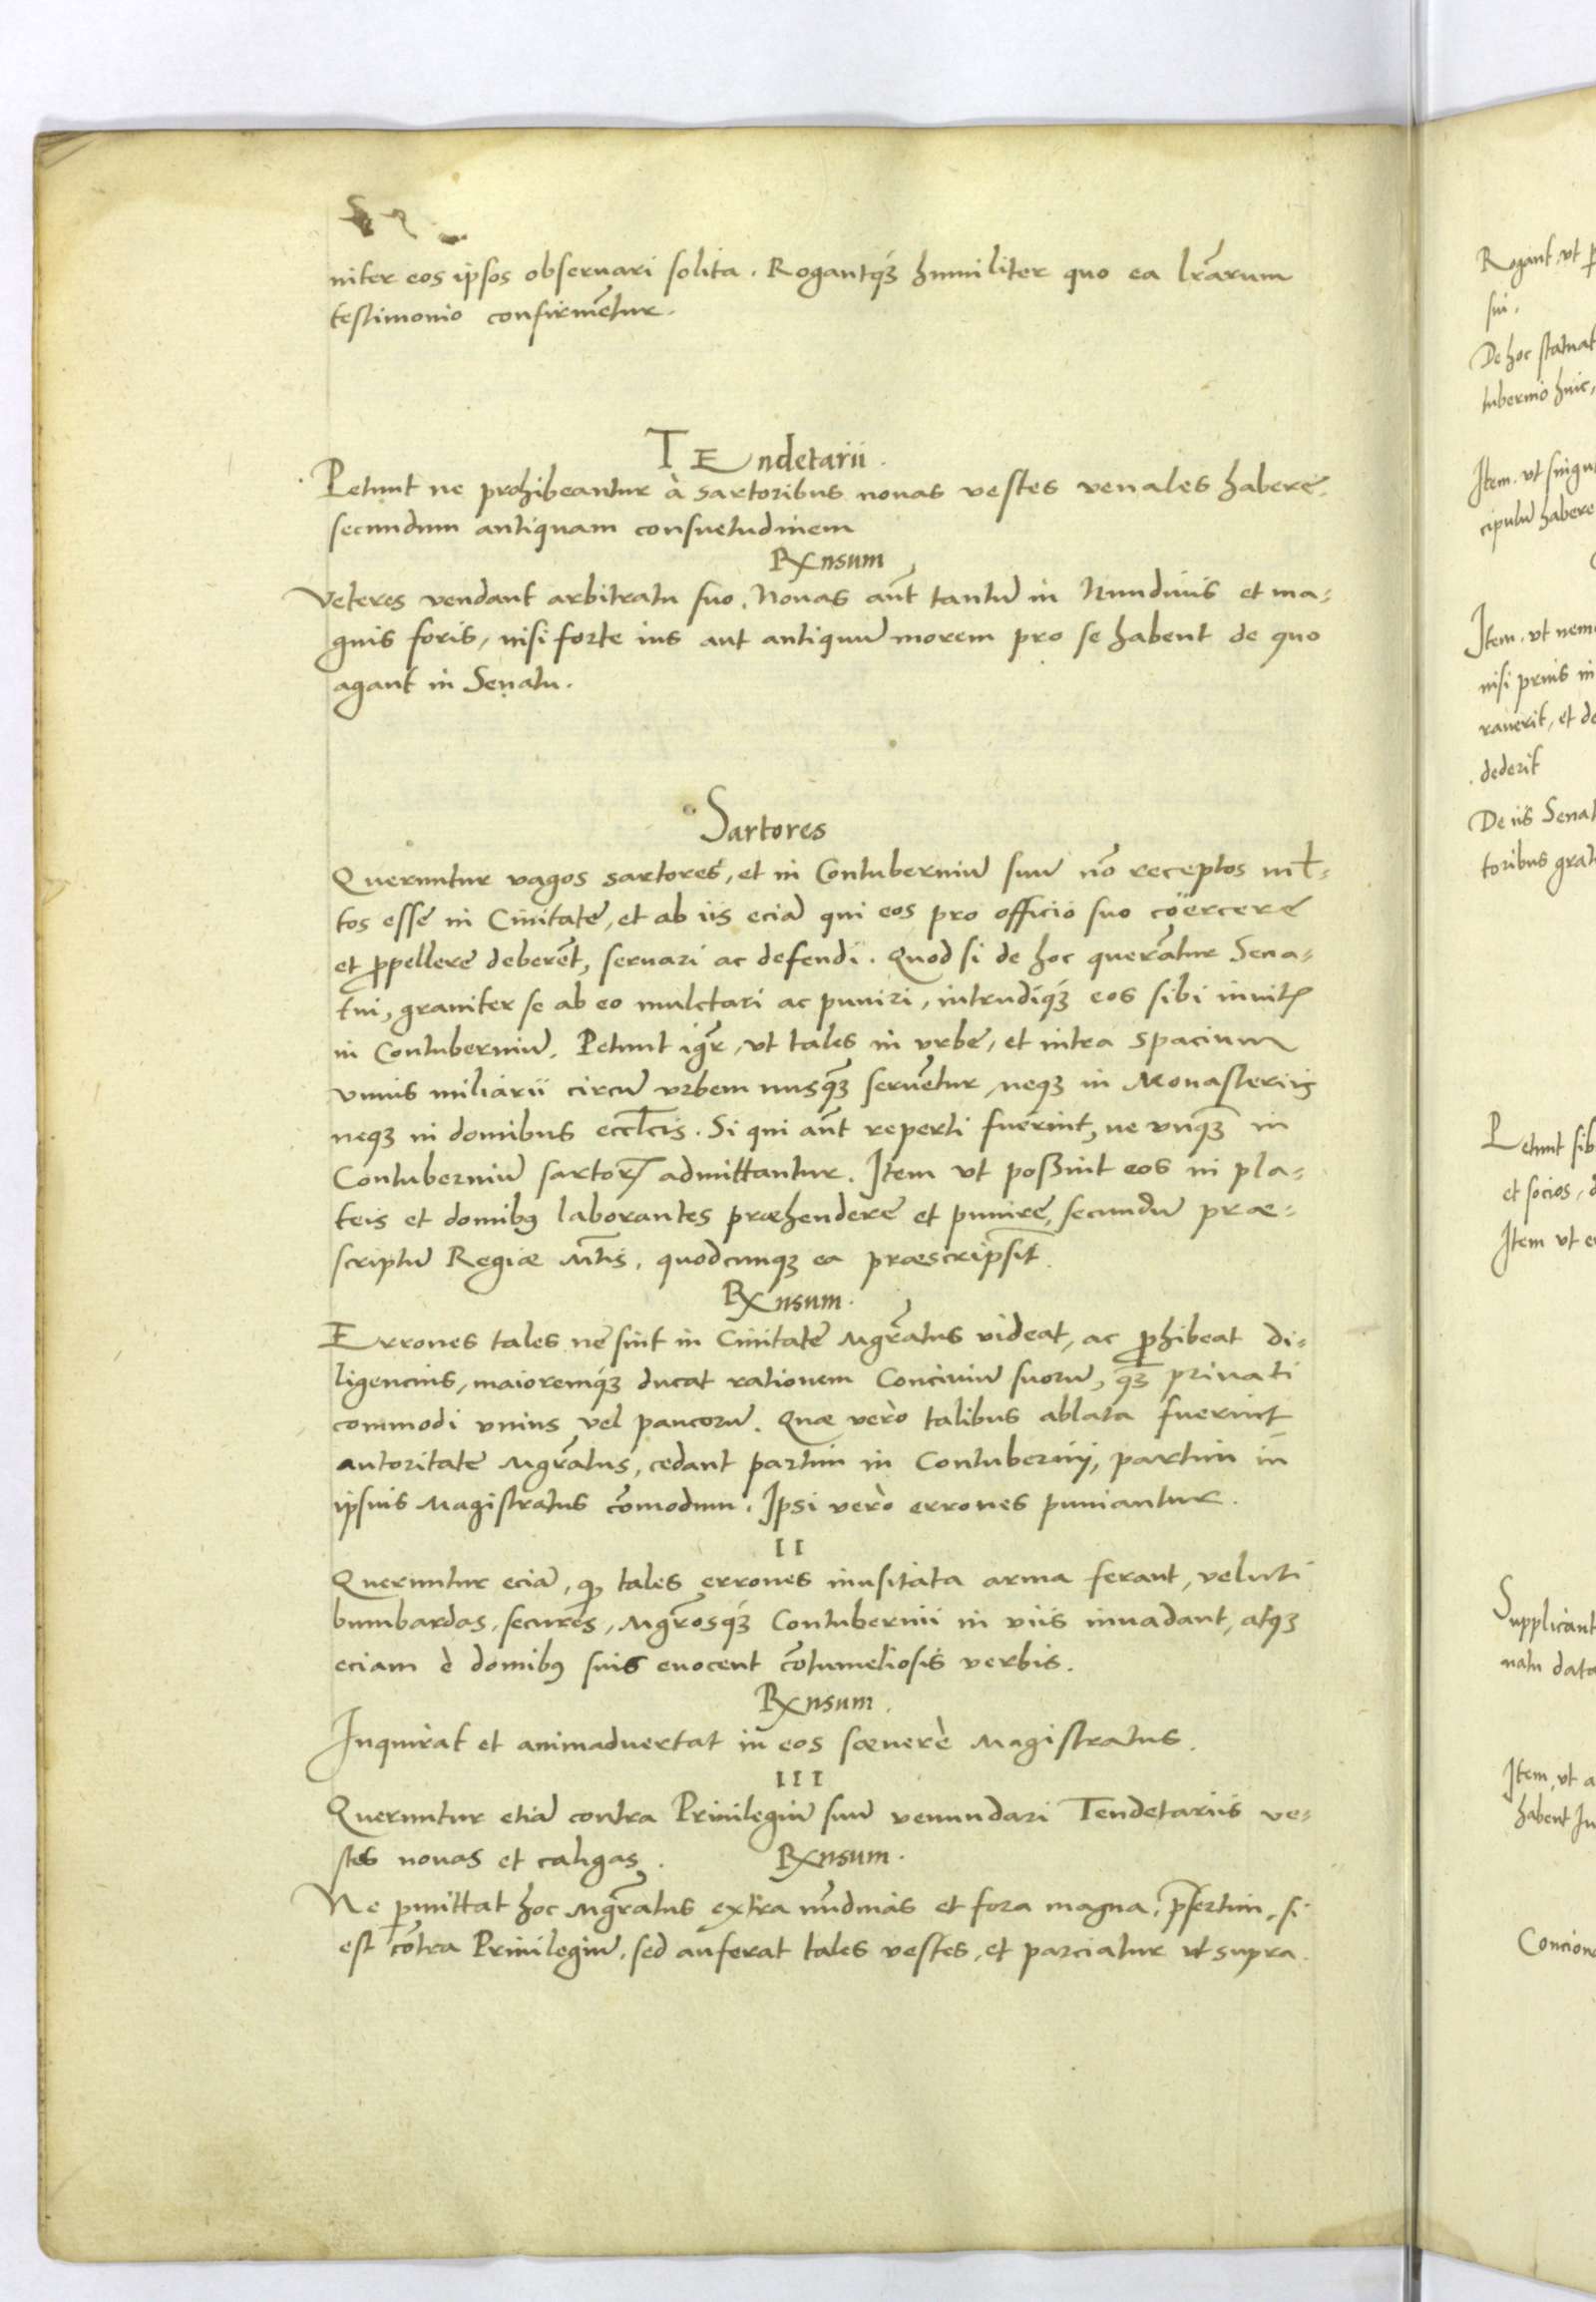 niter eos ipsos obseruari solita. Rogantq́ꝫ humiliter quo ea lr̃arum
testimonio confirmẽtur.
TEndetarii.
Petunt ne prohibeantur à sartoribus nouas vestes venales habere.
secundum antiquam consuetudinem
Rxnsum
Veteres vendant arbitratu suo. Nouas aũt tantũ in Nundinis et ma-
gnis foris, nisi forte ius aut antiquũ morem pro se habent de quo
agant in Senatu.
Sartores
Queruntur vagos sartores, et in Contuberniũ suũ nõ receptos mł-
tos esse in Ciuitate, et ab iis eciã qui eos pro officio suo coërcere
et ꝓpellere deberẽt, seruari ac defendi. Quod si de hoc querãtur Sena-
tui, grauiter se ab eo mulctari ac puniri, intrudiq́ꝫ eos sibi inuitꝭ
in Contuberniũ. Petunt igr̃, vt tales in vrbe, et intra spacium
vnius miliarii circũ vrbem nusq̃ꝫ seruẽtur, neqꝫ in Monasteriis
neqꝫ in domibus eccłcis. Si qui aũt reperti fuerint, ne vnq̃ꝫ in
Contuberniũ sartorꝝ admittantur. Item vt poßint eos in pla-
teis et domibꝰ laborantes præhendere et punire, secundũ præ-
scriptũ Regiæ M̃tis, quodcunqꝫ ea præscripsit.
Rxnsum.
Errones tales ne sint in Ciuitate Mgr̃atus videat, ac ꝓhibeat di-
ligencius, maioremq́ꝫ ducat rationem Conciuiũ suorũ, q̃ꝫ priuati
commodi vnius vel paucorũ. Quæ verò talibus ablata fuerint
autoritate Mgr̃atus, cedant partim in Contubernij, partim in
ipsius Magistratus cõmodum. Ipsi verò errones puniantur.
II
Queruntur eciã, qꝫ tales errones inusitata arma ferant, veluti
bumbardas, secures, Mgr̃osq́ꝫ Contubernii in viis inuadant, atqꝫ
eciam è domibꝰ suis euocent cõtumeliosis verbis.
Rxnsum.
Inquirat et animaduertat in eos sæuerè Magistratus.
III
Queruntur etiã contra Priuilegiũ suũ venundari Tendetariis ve-
stes nouas et caligas. Rxnsum.
Ne ꝑmittat hoc Mgr̃atus extra nũdinas et fora magna, p̃sertim, si
est cõtra Priuilegiũ, sed auferat tales vestes, et parciatur vt supra.
Rogant, vt
sui.
De hoc statuat
tubernio huic,
Item, vt singu
cipulũ habere
Item, vt nem
nisi prius in
rauerit, et de
dederit
De iis Senat
toribus grat
Petunt sib
et socios,
Item vt e
Supplicant
natu data
Item, vt a
habent In
Concion